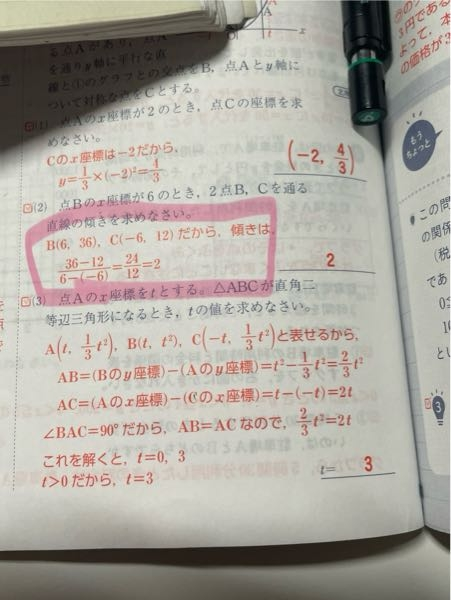 る点Aがあり、点A
を通りy軸に平行な直
線と①のグラフとの交点をB、点Aとy軸に
ついて対称な点をCとする。
(1) 点Aのx座標が2のとき、点Cの座標を求
めなさい。
Cのx座標は−2だから、
y=1/3×(−2)²=4/3
(−2, 4/3)
(2) 点Bのx座標が6のとき、2点B、Cを通る
直線の傾きを求めなさい。
B(6, 36), C(−6, 12)だから、傾きは、
36−12/6−(−6)=24/12=2
2
(3) 点Aのx座標をtとする。△ABCが直角二
等辺三角形になるとき、tの値を求めなさい。
A(t, 1/3t²), B(t, t²), C(−t, 1/3t²)と表せるから、
AB=(Bのy座標)−(Aのy座標)=t²−1/3t²=2/3t²
AC=(Aのx座標)−(Cのx座標)=t−(−t)=2t
∠BAC=90°だから、AB=ACなので、2/3t²=2t
これを解くと、t=0, 3
t>0だから、t=3
t=3
3円である
よって、本
の価格が3
もう
ちょっと
この問
の関係
(税
であ
とし
3